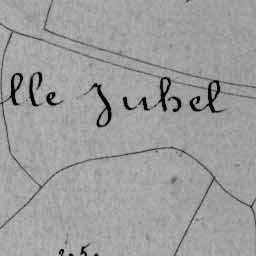 lle Jubel